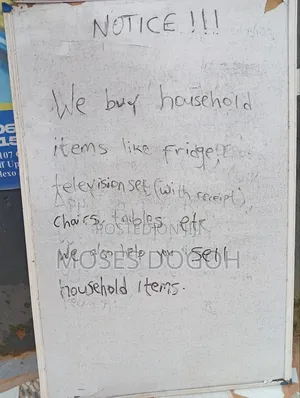 NOTICE !!!
We buy household
items like fridge,
television set (with receipt),
chairs, tables etc
We also help you sell
household items.
POSTED ON
MOSES DOGOH